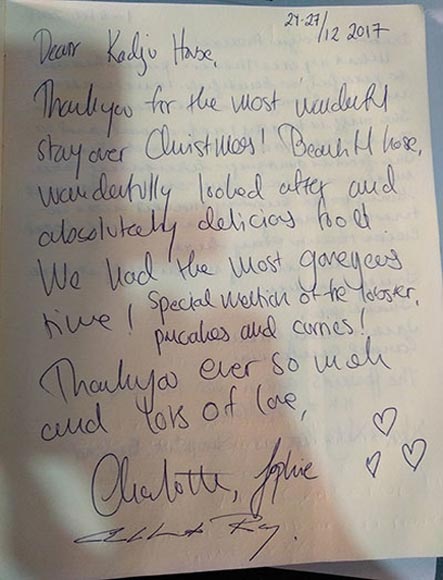 24-27/12 2017
Dear Kadju House,
Thankyou for the most wonderful
stay over Christmas! Beautiful house,
wonderfully looked after and
absolutely delicious food.
We had the most gorgeous
time! Special mention of the lobster,
pancakes and curries!
Thankyou ever so much
and lots of love,
Charlotte, Sophie